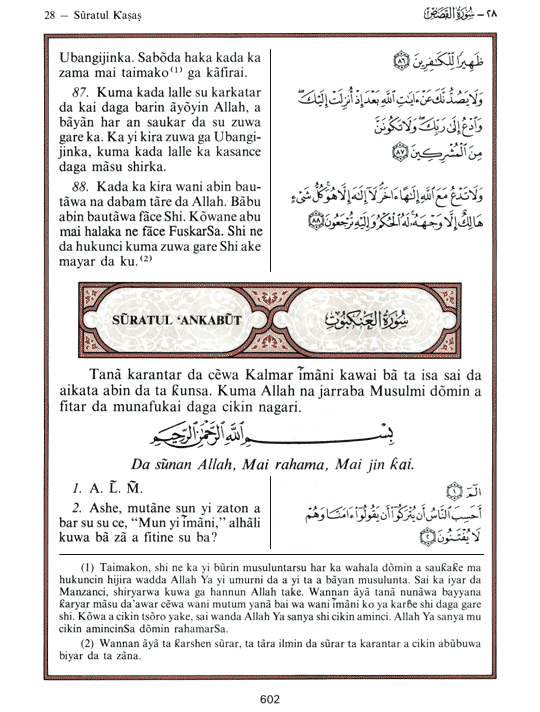 28 — Sũratul Ƙaṣaṣ
٢٨ – سُورَةُ القَصَصِ
Ubangijinka. Sabõda haka kada ka
zama mai taimako(1) ga kãfirai.
ظَهِيرًا لِّلْكَٰفِرِينَ ٨٦
87. Kuma kada lalle su karkatar
da kai daga barin ãyõyin Allah, a
bãyãn har an saukar da su zuwa
gare ka. Ka yi kira zuwa ga Ubangi-
jinka, kuma kada lalle ka kasance
daga mãsu shirka.
وَلَا يَصُدُّنَّكَ عَنْ ءَايَٰتِ ٱللَّهِ بَعْدَ إِذْ أُنزِلَتْ إِلَيْكَ ۖ
وَٱدْعُ إِلَىٰ رَبِّكَ ۖ وَلَا تَكُونَنَّ
مِنَ ٱلْمُشْرِكِينَ ٨٧
88. Kada ka kira wani abin bau-
tãwa na dabam tãre da Allah. Bãbu
abin bautãwa fãce Shi. Kõwane abu
mai halaka ne fãce FuskarSa. Shi ne
da hukunci kuma zuwa gare Shi ake
mayar da ku.(2)
وَلَا تَدْعُ مَعَ ٱللَّهِ إِلَٰهًا ءَاخَرَ ۘ لَآ إِلَٰهَ إِلَّا هُوَ ۚ كُلُّ شَىْءٍ
هَالِكٌ إِلَّا وَجْهَهُۥ ۚ لَهُ ٱلْحُكْمُ وَإِلَيْهِ تُرْجَعُونَ ٨٨
SŨRATUL ‘ANKABŨT
سُورَةُ العَنكَبُوتِ
Tanã karantar da cẽwa Kalmar ĩmãni kawai bã ta isa sai da
aikata abin da ta ƙunsa. Kuma Allah na jarraba Musulmi dõmin a
fitar da munafukai daga cikin nagari.
بِسْمِ ٱللَّهِ ٱلرَّحْمَٰنِ ٱلرَّحِيمِ
Da sũnan Allah, Mai rahama, Mai jin ƙai.
1. A. L̃. M̃.
الٓمٓ ١
2. Ashe, mutãne sun yi zaton a
bar su su ce, “Mun yi ĩmãni,” alhãli
kuwa bã zã a fitine su ba?
أَحَسِبَ ٱلنَّاسُ أَن يُتْرَكُوٓا۟ أَن يَقُولُوٓا۟ ءَامَنَّا وَهُمْ
لَا يُفْتَنُونَ ٢
(1) Taimakon, shi ne ka yi bũrin musuluntarsu har ka wahala dõmin a sauƙaƙe ma
hukuncin hijira wadda Allah Ya yi umurni da a yi ta a bãyan musulunta. Sai ka iyar da
Manzanci, shiryarwa kuwa ga hannun Allah take. Wannan ãyã tanã nunãwa bayyana
ƙaryar mãsu da'awar cẽwa wani mutum yanã bai wa wani ĩmãni ko ya karɓe shi daga gare
shi. Kõwa a cikin tsõro yake, sai wanda Allah Ya sanya shi cikin aminci. Allah Ya sanya mu
cikin amincinSa dõmin rahamarSa.
(2) Wannan ãyã ta ƙarshen sũrar, ta tãra ilmin da sũrar ta karantar a cikin abũbuwa
biyar da ta zãna.
602